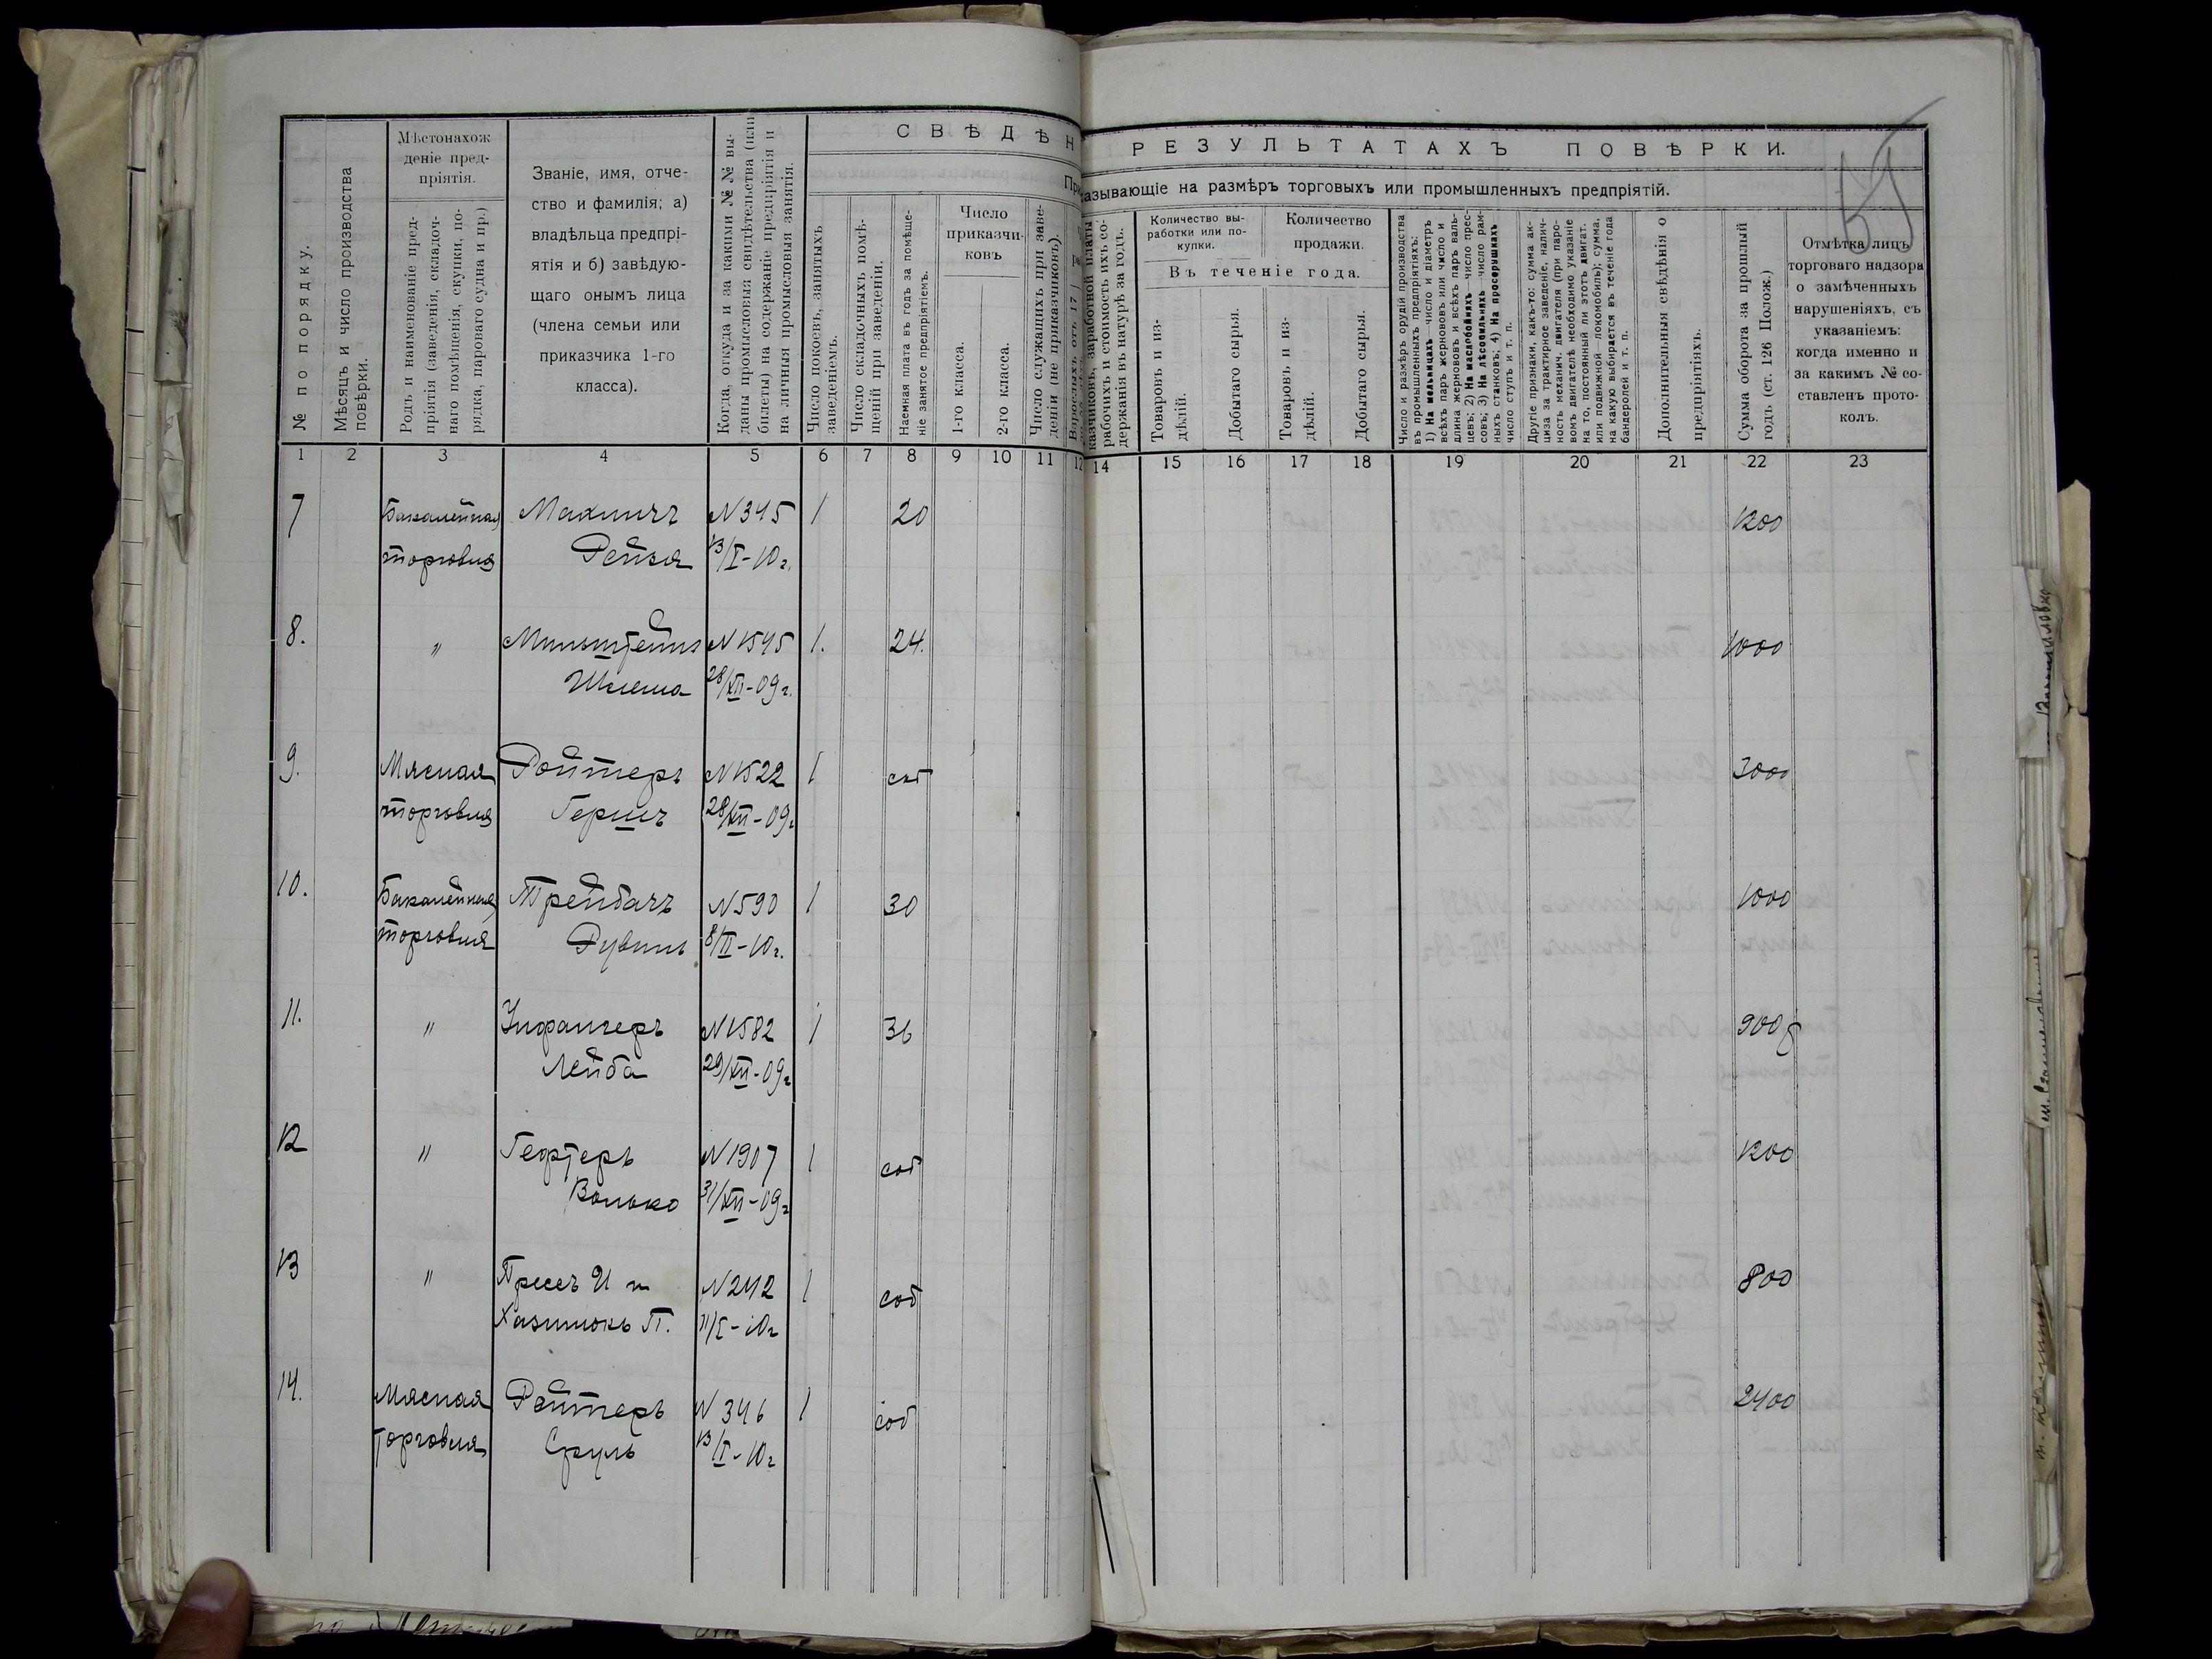 СВѢДѢН
РЕЗУЛЬТАТАХЪ ПОВѢРКИ.
казывающіе на размѣръ торговыхъ или промышленныхъ предпріятій.
№ по порядку.
Мѣсяцъ и число производства
повѣрки.
Мѣстонахож
деніе пред-
пріятія.
Родъ и наименованіе пред-
пріятія (заведенія, складоч-
наго помѣщенія, скупки, по-
рядка, парового судна и пр.)
Званіе, имя, отче-
ство и фамилія; а)
владѣльца предпрі-
ятія и б) завѣдую-
щаго онымъ лица
(члена семьи или
приказчика 1-го
класса).
Когда, откуда и за какими №№ вы-
даны промысловыя свидѣтельства (или
билеты) на содержаніе предпріятія и
на личныя промысловыя занятія.
Число покоевъ, занятыхъ
заведеніемъ.
Число складочныхъ помѣ-
щеній при заведеніи.
Наемная плата въ годъ за помѣще-
ніе занятое предпріятіемъ.
Число
приказчи-
ковъ
1-го класса.
2-го класса.
Число служащихъ при заве-
деніи (не приказчиковъ).
казчиковъ, заработной платы
рабочихъ и стоимость ихъ со-
держанія въ натурѣ за годъ.
Количество вы-
работки или по-
купки.
Количество
продажи.
Въ теченіе года.
Товаровъ и из-
дѣлій.
Добытаго сырья.
Товаровъ и из-
дѣлій.
Добытаго сырья.
Число и размѣръ орудій производства
въ промышленныхъ предпріятіяхъ:
1) На мельницахъ число и діаметръ
всѣхъ паръ жернововъ или число и
длина жернововъ и всѣхъ паръ валь-
цевъ; 2) На маслобойняхъ число прес-
совъ; 3) На лѣсопильняхъ число рам-
ныхъ станковъ; 4) На просорушкахъ
число ступъ и т. п.
Другіе признаки, какъ-то: сумма ак-
циза за трактирное заведеніе, налич-
ность механич. двигателя (при паро-
вомъ двигателѣ необходимо указаніе
на то, постоянный ли этотъ двигат.
или подвижной—локомобиль); сумма,
на какую выбирается въ теченіе года
бандеролей и т. п.
Дополнительныя свѣдѣнія о
предпріятіяхъ.
Сумма оборота за прошлый
годъ (ст. 126 Полож.)
Отмѣтка лицъ
торговаго надзора
о замѣченныхъ
нарушеніяхъ, съ
указаніемъ:
когда именно и
за какимъ № со-
ставленъ прото-
колъ.
1 2 3 4 5 6 7 8 9 10 11 12 14 15 16 17 18 19 20 21 22 23
7 Бакалейная Махничъ N 345 1 20 1200
торговля Рейзя 13/I-10 г.
8. " Мильштейнъ N 1545 1. 24. 1000
Шлема 28/XII-09 г.
9. Мясная Ройтеръ N 1522 1 соб 3000
торговля Гершъ 28/XII-09 г
10. Бакалейная Трейбачъ N 590 1 30 1000
торговля Рувинъ 8/II-10 г.
11. " Унфангеръ N 1582 1 36 900
Лейба 29/XII-09 г
12 " Гефтеръ N 1907 1 соб 1200
Волько 31/XII-09 г
13 " Пресъ И и N 242 1 соб 800
Хазинокъ П. 11/I-10 г
14. Мясная Рейтеръ N 346 1 соб 2400
торговля Сруль 13/I-10 г